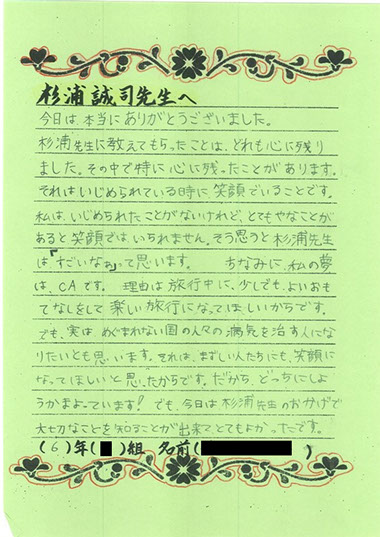 杉浦誠司先生へ
今日は本当にありがとうございました。
杉浦先生に教えてもらったことは、どれも心に残り
ました。その中で特に心に残ったことがあります。
それはいじめられている時に笑顔でいることです。
私は、いじめられたことがないけれど、とてもやなことが
あると笑顔では、いられません。そう思うと杉浦先生
は「すごいなぁ」って思います。 ちなみに、私の夢
は、CAです。 理由は旅行中に、少しでも、よいおも
てなしをして楽しい旅行になってほしいからです。
でも、実は めぐまれない国の人々の病気を治す人にな
りたいとも思います。それは、まずしい人たちにも、笑顔に
なってほしいと思ったからです。だから、どっちにしよ
うかまよっています! でも、今日は杉浦先生のおかげで
大切なことを知ることが出来てとてもよかったです。
(6)年( )組 名前( )